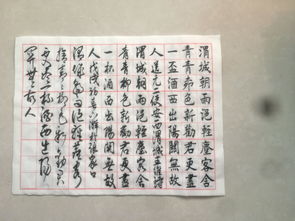 渭城朝雨浥輕塵客舍
青青柳色新勸君更盡
一盃酒西出陽關無故
人送元二使安西渭城王維詩
渭城朝雨浥輕塵客舍
青青柳色新勸君更盡
一杯酒西出陽關無故
人
渭城朝雨浥輕塵客
舍青青柳色新勸君
更盡一杯酒西出陽
關無故人